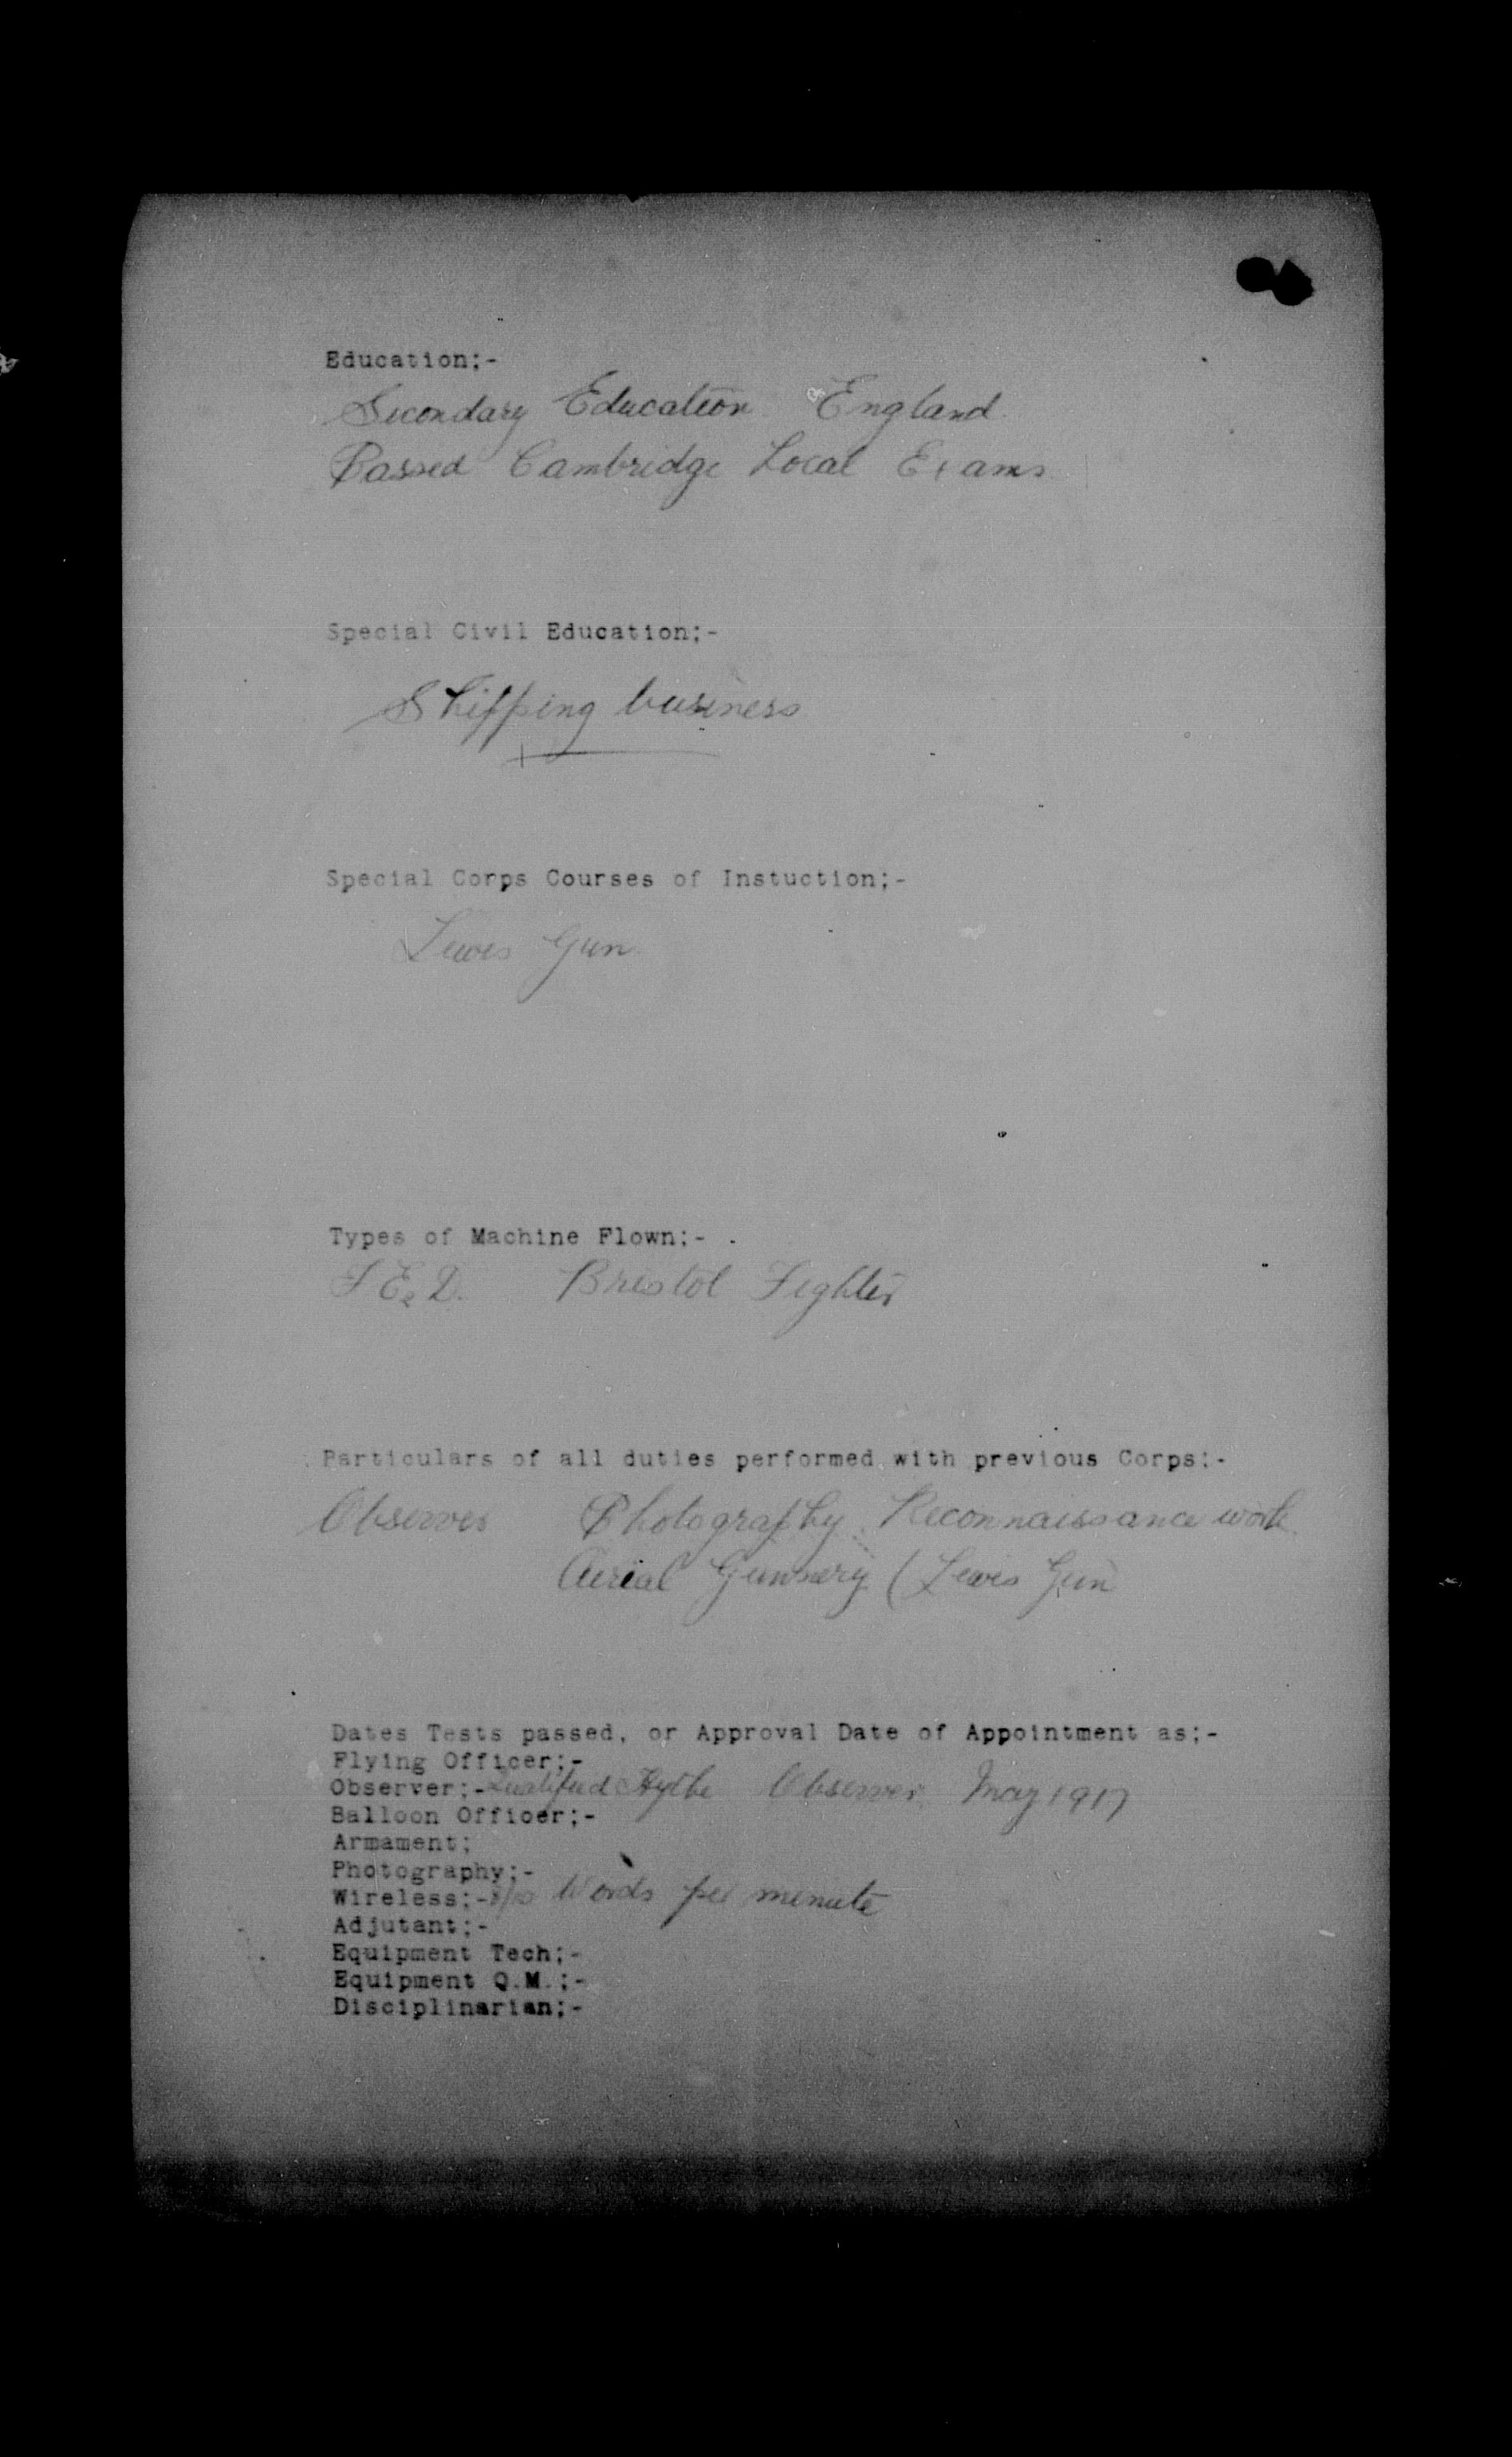 Education;-
Secondary Education England
Passed Cambridge Local Exams
Special Civil Education;-
Shipping business
Special Corps Courses of Instuction;-
Lewis Gun
Types of Machine Flown;-
F E2 D. Bristol Fighter
Particulars of all duties performed with previous Corps;-
Observer Photography Reconnaissance work
Aerial Gunnery (Lewis Gun
Dates Tests passed, or Approval Date of Appointment as;-
Flying Officer;-
Observer;- Qualified Hythe Observer May 1917
Balloon Officer;-
Armament;
Photography;-
Wireless;- Words per minute
Adjutant;-
Equipment Tech;-
Equipment Q.M.;-
Disciplinarian;-